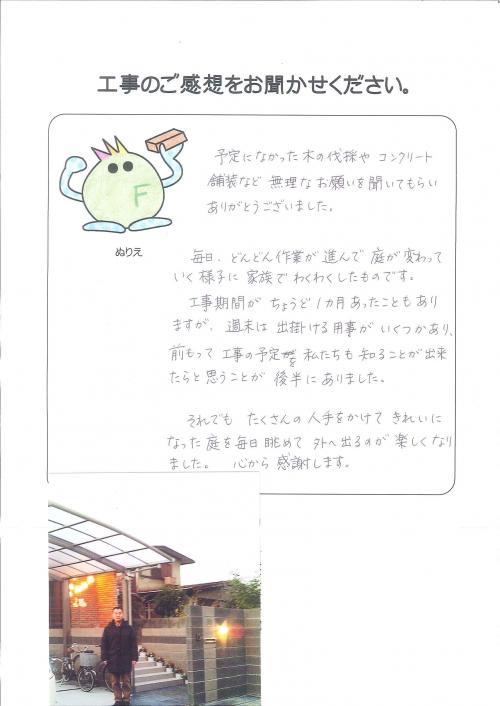 工事のご感想をお聞かせください。
F
ぬりえ
予定になかった木の伐採や コンクリート
舗装など 無理なお願いを聞いてもらい
ありがとうございました。
毎日、どんどん作業が進んで 庭が変わって
いく様子に 家族でわくわくしたものです。
工事期間が ちょうど1カ月あったことも あり
ますが、週末は 出掛ける用事が いくつかあり、
前もって 工事の予定を 私たちも 知ることが出来
たらと思うことが 後半にありました。
それでも たくさんの 人手をかけて きれいに
なった 庭を毎日眺めて 外へ出るのが 楽しくなり
ました。 心から 感謝します。